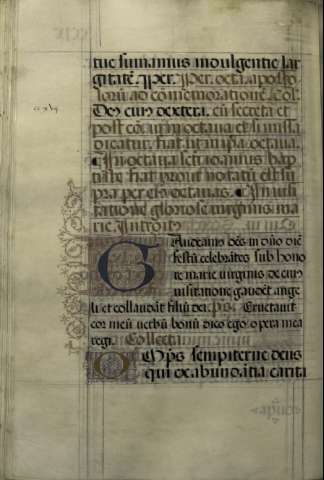 tue sumamus indulgentie lar
gitatē. Per. Per. octa. aposto
lorū ad cōmemorationē. Col.
Deꝰ cuiꝰ dextera. cū secreta et
post cōi. ut in octaua et si missa
dicatur. fiat ut in ipsa octaua.
In octaua scti ioannis bap
tiste fiat prout notatū est su
pra per eiꝰ octauas. In uisi
tatione gloriose uirginis ma
rie. Introitꝰ
Gaudeamꝰ oēs in dn̄o diē
festū celebrātes sub hono
re marie uirginis de cuiꝰ
uisitatione gaudēt ange
li et collaudāt filiū dei. ps. Eructauit
cor meū uerbū bonū dico ego opera mea
regi. Collecta.
Omps sempiterne deus
qui ex abundātia carita